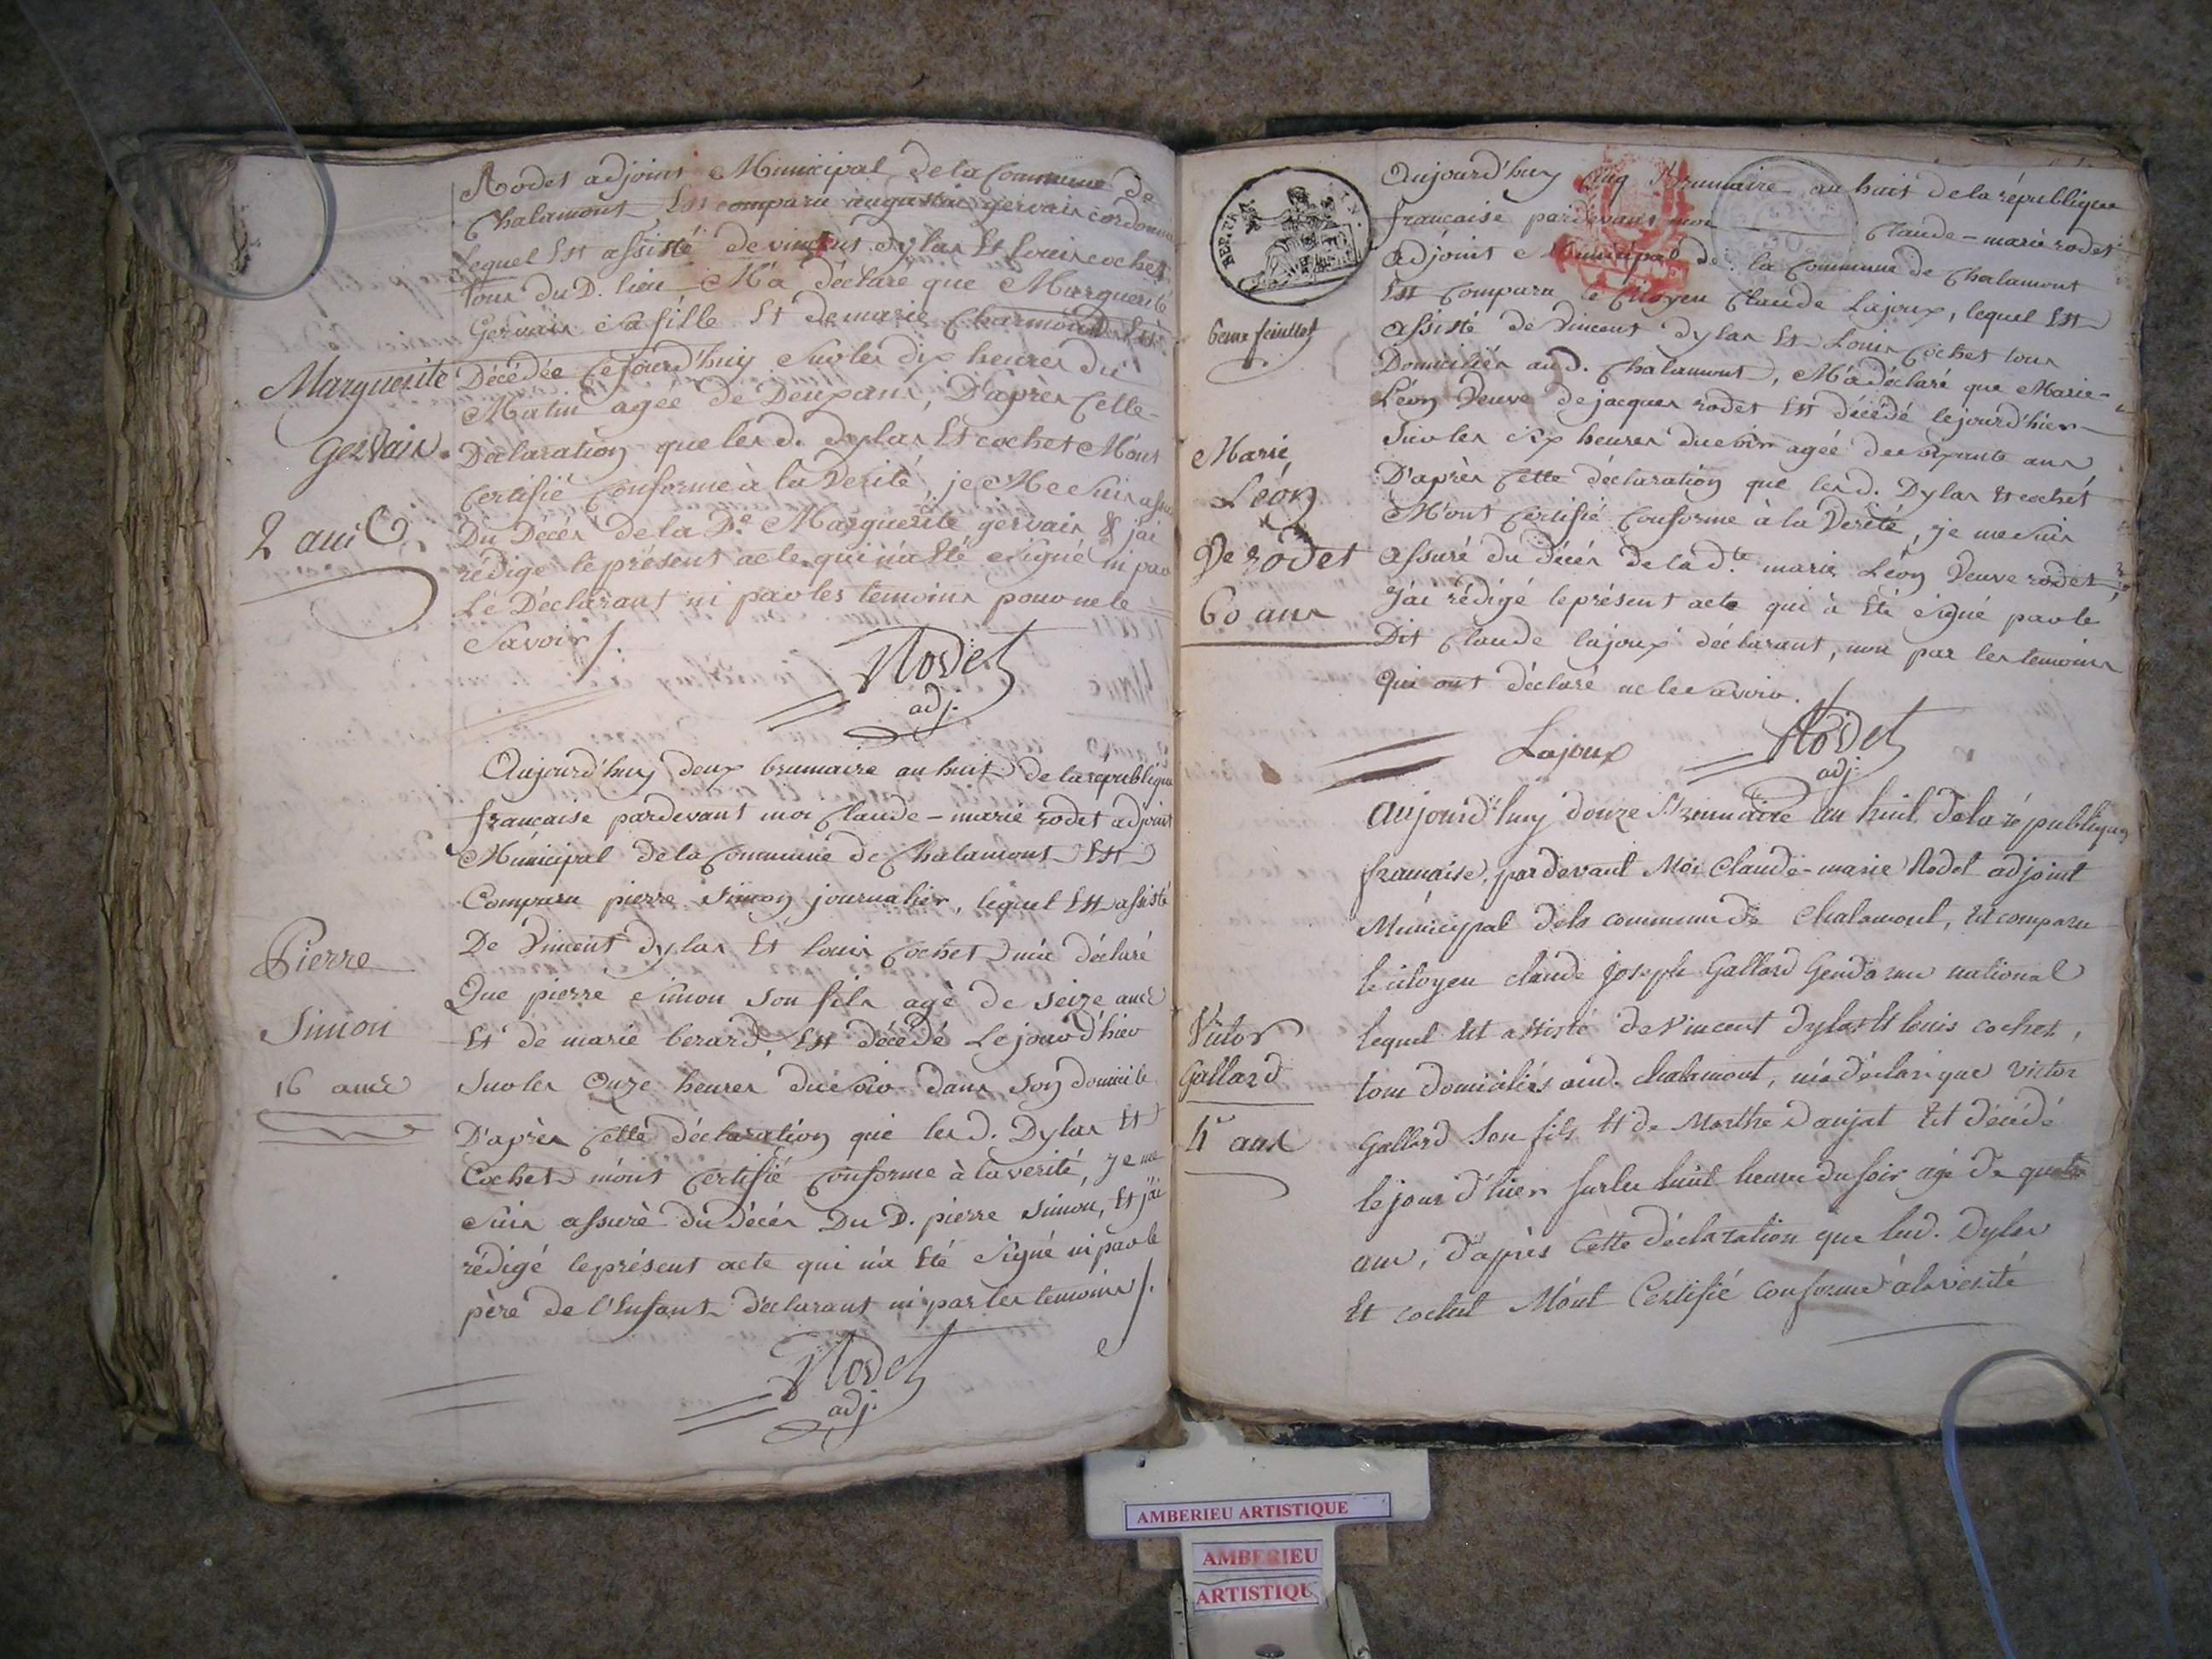 Rodet adjoint Municipal de la Commune de
Chalamont Est comparu augustin gervain cordonn
Lequel Est assisté de vincent dylas Et Louis cochet
tous du D. lieu M'a déclaré que Marguerite
Gervain sa fille Et de marie Charmond Est
Marguerite
Décédée cejourd'huy sur les dix heures du
Matin agée de Deux ans, D'après Cette
gervain.
Déclaration que les d. dylas Et cochet M'ont
Certifié Conforme à la Verité, je Me suis assu
2 ans
Du Décès de la De Marguerite gervain & j'ai
rédigé le présent acte qui n'a Eté signé ni par
Le Déclarant ni par les temoins pour ne le
savoir /.
Rodet
adj.
Aujourd'huy deux brumaire an huit de la république
française pardevant moi Claude-marie rodet adjoint
Municipal de la Commune de Chalamont Est
Comparu pierre simon journalier, lequel Est assisté
Pierre
De Vincent dylas Et louis Cochet m'a déclaré
Que pierre simon son fils agé de seize ans
Simon
Et de marie berard, Est décédé Le jour d'hier
16 ans
sur les Onze heures du soir dans son domicile
D'après Cette déclaration que les d. Dylas Et
Cochet m'ont Certifié Conforme à la verité, je me
suis assuré du décès Du D. pierre simon, Et j'ai
rédigé le présent acte qui n'a Eté signé ni par le
père de l'Enfant déclarant ni par les temoins /.
Rodet
adj.
Aujourd'huy Cinq Brumaire an huit de la république
française pardevant moi Claude-marie rodet
adjoint Municipal de la Commune de Chalamont
Est Comparu le Citoyen Claude Lajoux, lequel Est
6eme feuillet
assisté de Vincent dylas Et Louis Cochet tous
Domiciliés aud. Chalamont, M'a déclaré que Marie
Léon Veuve de jacques rodet Est décédé le jour d'hier
sur les six heures du soir agée de soixante ans
Marie
Léon
Ve rodet
60 ans
D'après Cette déclaration que les d. Dylas Et cochet
M'ont Certifié Conforme à la Verité, je me suis
assuré du décès de la dte marie Léon Veuve rodet,
j'ai rédigé le présent acte qui à Eté signé par le
Dit Claude lajoux déclarant, non par les temoins
Qui ont déclaré ne le savoir.
Lajoux Rodet
adj.
aujourd'huy douze Brumaire an huit de la république
française, pardevant Moi Claude-marie Rodet adjoint
Municipal de la commune de Chalamont, Est comparu
le citoyen claude joseph Gallard Gendarme national
Victor
Gallard
lequel Est assisté de Vincent Dylas Et louis cochet,
tous domiciliés aud. chalamont, m'a déclaré que victor
4 ans
Gallard son fils Et de Marthe Danjat Est décédé
le jour d'hier sur les huit heures du soir agé de quatre
ans, d'après Cette déclaration que lesd. Dylas
Et cochet M'ont Certifié conforme à la verité
AMBERIEU ARTISTIQUE
AMBERIEU
ARTISTIQU